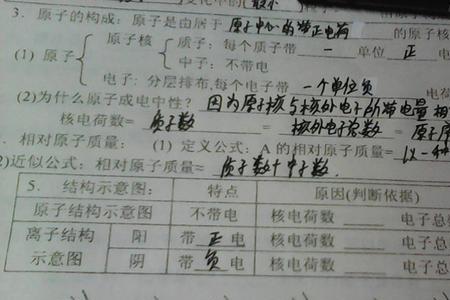 3. 原子的构成: 原子是由居于 原子中心的带正电荷 的原子核
原子核 质子: 每个质子带 一 单位 正 电
(1) 原子
中子: 不带电
电子: 分层排布,每个电子带 一个单位负 电荷
(2)为什么原子成电中性? 因为原子核与核外电子所带电量相
核电荷数= 质子数 = 核外电子总数 = 原子序
. 相对原子质量: (1) 定义公式: A 的相对原子质量= 以一种
2)近似公式: 相对原子质量≈ 质子数+中子数.
5. 结构示意图: 特点 原因(判断依据)
原子结构示意图 不带电 核电荷数 ____ 电子总
离子结构 阳 带 正 电 核电荷数 ____ 电子总
示意图 阴 带 负 电 核电荷数 ____ 电子总